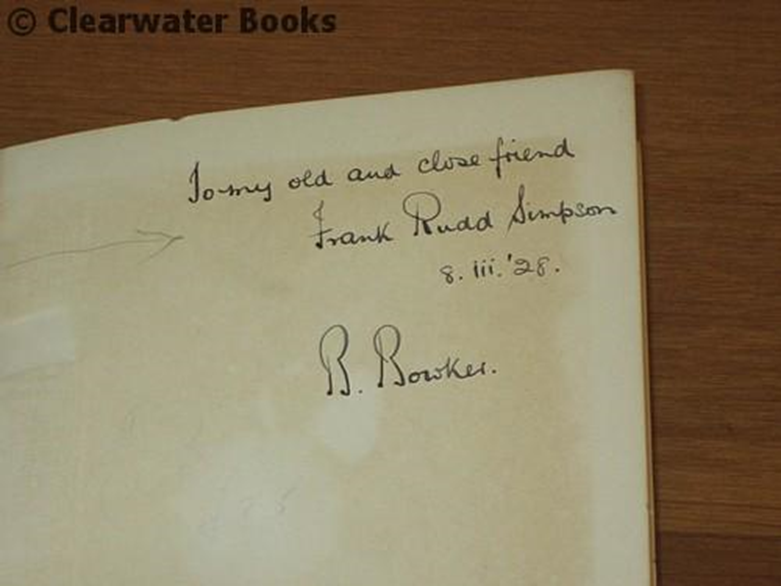 © Clearwater Books
To my old and close friend
Frank Rudd Simpson
8. iii. '28.
B. Bowker.